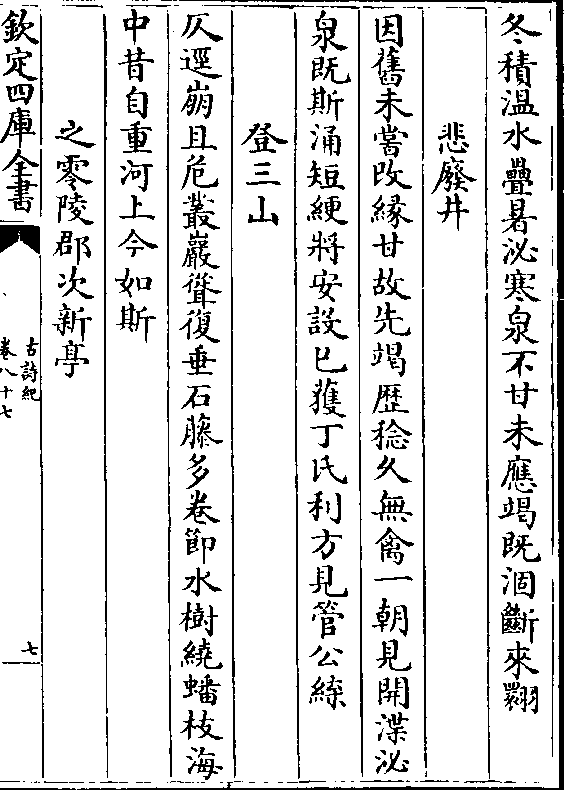 冬積溫水疊暑泌寒泉不甘未應竭既涸斷來翾
悲廢井
因舊未嘗改緣甘故先竭歴稔久無禽一朝見開渫泌
泉既斯涌短綆將安設已獲丁氏利方見管公綠
登三山
仄逕崩且危叢巖聳復垂石藤多卷節水樹繞蟠枝海
中昔自重河上今如斯
之零陵郡次新亭
欽定四庫全書
古詩紀
卷八十七
七